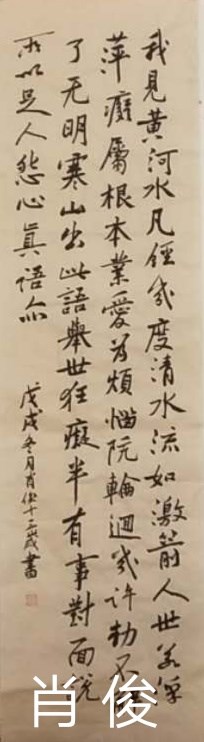 我見黃河水凡經幾度清水流如激箭人世若浮
萍癡屬根本業愛為煩惱阬輪迴幾許劫不解
了无明寒山出此語舉世狂癡半有事對面說
所以足人怨心真語亦
戊戌冬月肖俊十三歲書
肖俊